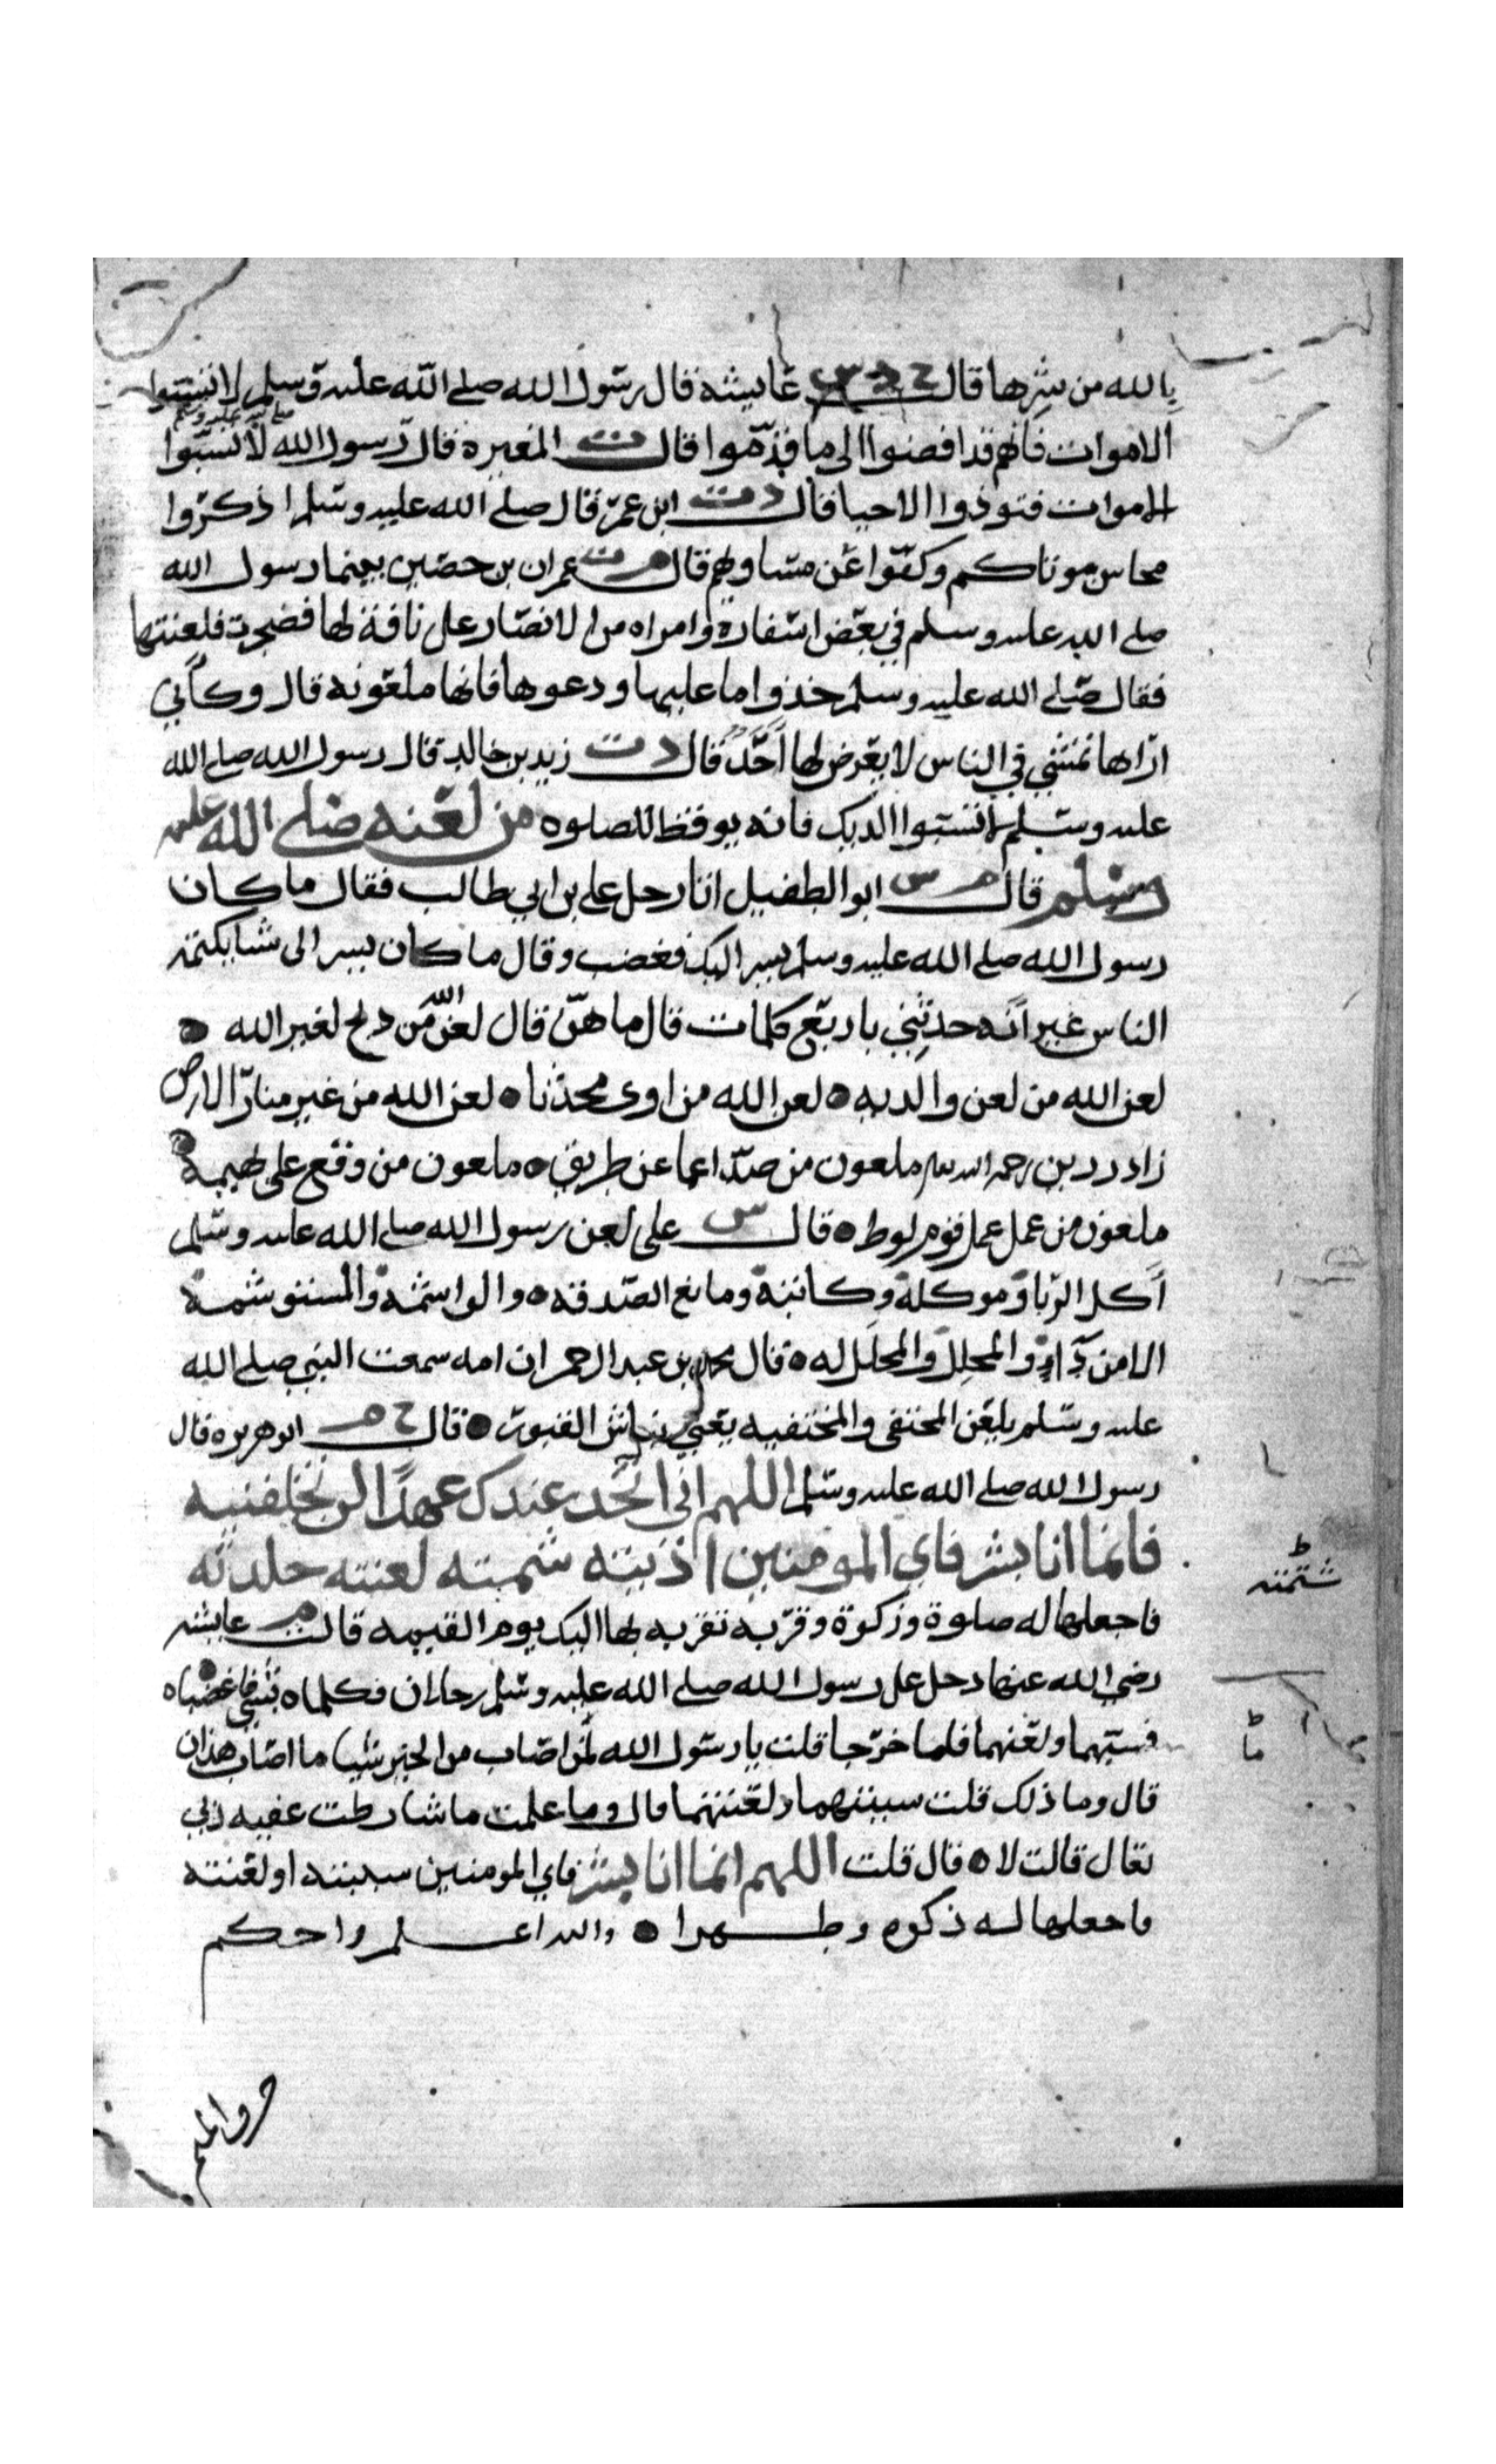 بالله من شرها قال خ د س عايشة قال رسول الله صلى الله عليه وسلم لا تسبوا
الاموات فانهم قد افضوا الى ما قدموا قال ت المغيرة قال رسول الله صلى الله عليه وسلم لا تسبوا
الاموات فتوذوا الاحيا قال د ت ابن عمر قال صلى الله عليه وسلم اذكروا
محاسن موتاكم وكفوا عن مساويهم قال م د عمران بن حصين بينما رسول الله
صلى الله عليه وسلم في بعض اسفاره وامراه من الانصار على ناقة لها فضجرت فلعنتها
فقال صلى الله عليه وسلم خذوا ما عليها ودعوها فانها ملعونه قال وكأني
اراها تمشي في الناس لا يعرض لها احد قال د ت زيد بن خالد قال رسول الله صلى الله
عليه وسلم لا تسبوا الديك فانه يوقظ للصلوه من لعنه صلى الله عليه
وسلم قال م س ابو الطفيل اتا رجل على بن ابي طالب فقال ما كان
رسول الله صلى الله عليه وسلم يسر اليك فغضب وقال ما كان يسر الى شيا يكتمه
الناس غير انه حدثني باربع كلمات قال ما هن قال لعن الله من ذبح لغير الله
لعن الله من لعن والديه لعن الله من اوى محدثا لعن الله من غير منار الارض
زاد رزين رحمه الله ملعون من صد اعما عن طريق ملعون من وقع على بهيمة
ملعون من عمل عمل قوم لوط قال س على لعن رسول الله صلى الله عليه وسلم
آكل الربا وموكله وكاتبه ومانع الصدقه والواشمة والمستوشمة
الا من داء والمحلل والمحلل له قال محمد بن عبد الرحمن ان امه سمعت النبي صلى الله
عليه وسلم يلعن المختفى والمختفيه يعني نباش القبور قال خ م ابو هريره قال
رسول الله صلى الله عليه وسلم اللهم انى اتخذ عندك عهدًا لن تخلفنيه
فانما انا بشر فاي المومنين اذيته شمته لعنته جلدته
شتمته
فاجعلها له صلوة وزكوة وقربه تقربه بها اليك يوم القيمه قالت م عايشه
رضي الله عنها دخل على رسول الله صلى الله عليه وسلم رجلان فكلماه بشي فاغضباه
فسبهما ولعنهما فلما خرجا قلت يا رسول الله لمن اصاب من الخير شيا ما اصاب هذان
ما
قال وما ذلك قلت سببتهما ولعنتهما قال وما علمت ما شارطت عليه ربي
تعال قالت لا قال قلت اللهم انما انا بشر فاي المومنين سببته او لعنته
فاجعلها له زكوه وطهرا والله اعلم واحكم
حرف الميم